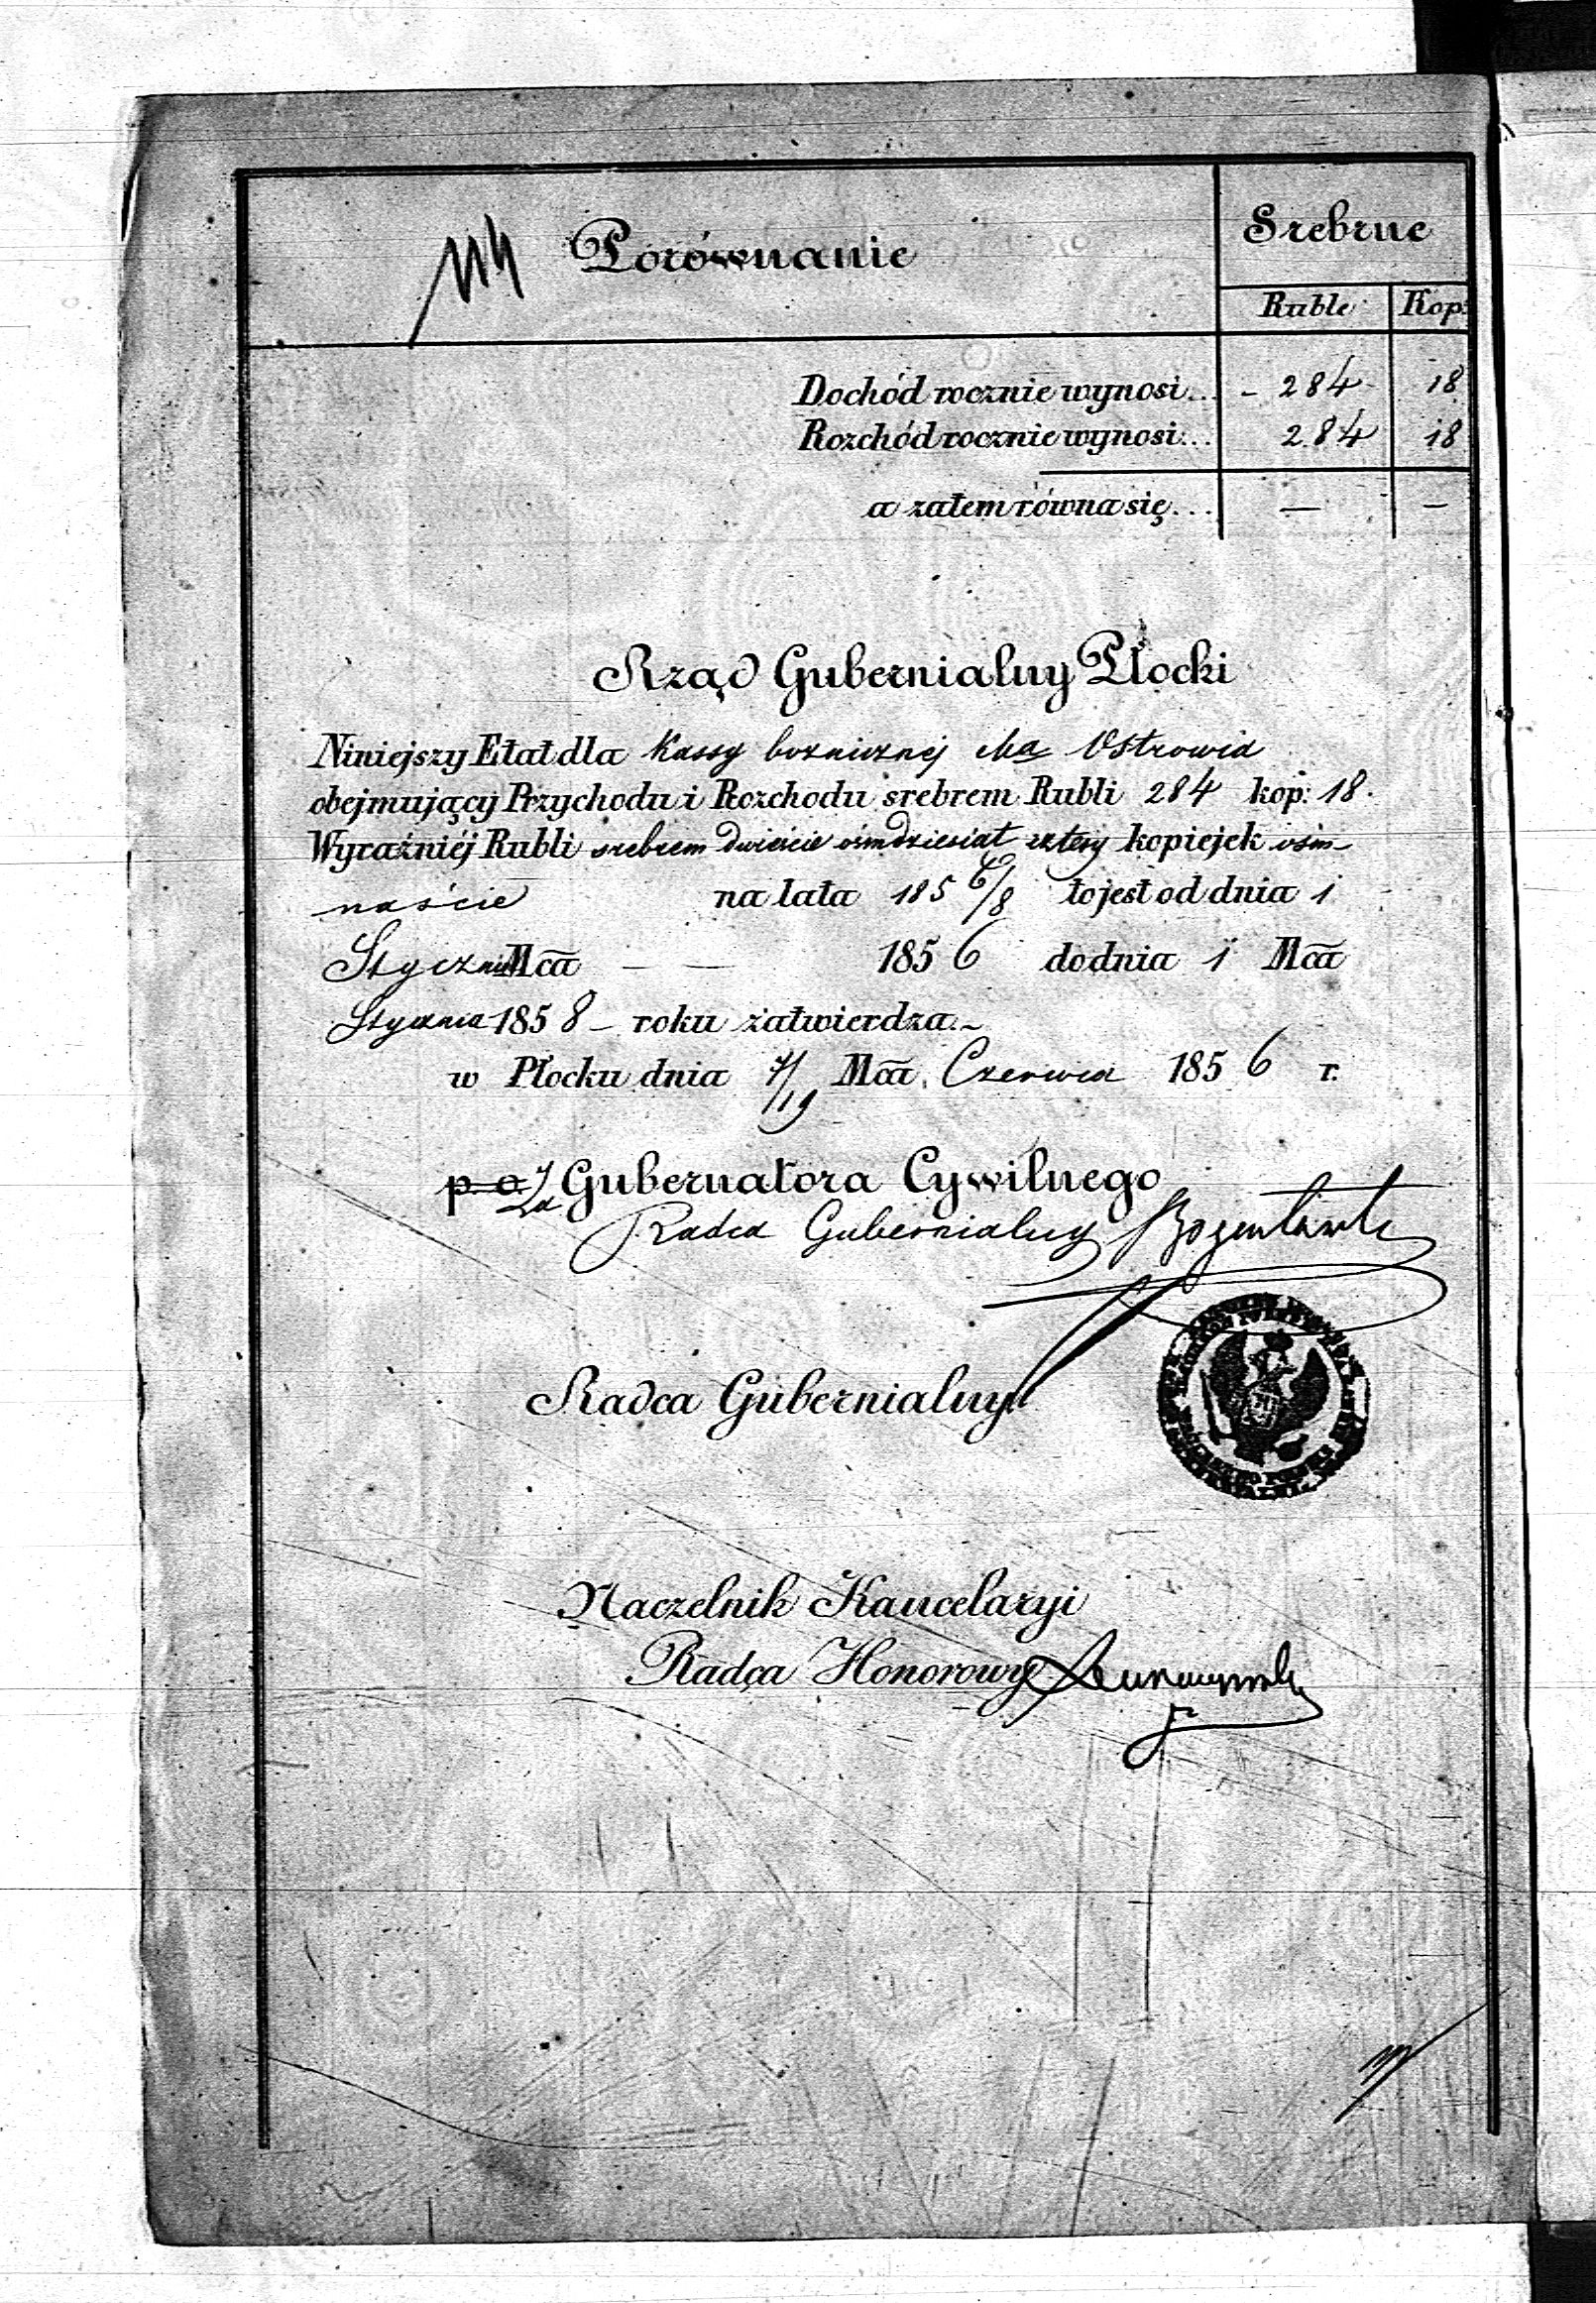 Porównanie
Srebrne
Ruble Kop:
Dochód rocznie wynosi... - 284 - 18
Rozchód rocznie wynosi... 284 18
a zatem równa się... — —
Rząd Gubernialny Płocki
Niniejszy Etat dla Kassy bożnicznéj Mta Ostrowia
obejmujący Przychodu i Rozchodu srebrem Rubli 284 kop: 18.
Wyraźniéj Rubli srebrem dwieście ośmdziesiąt cztery kopiejek ośm-
naście na lata 185 6/8 to jest od dnia 1
Stycznia Mca — — 1856 do dnia 1 Mca
Stycznia 1858 - roku zatwierdza.~
w Płocku dnia 7/19 Mca Czerwca 1856 r.
p. o. Za Gubernatora Cywilnego
Radca Gubernialny
Radca Gubernialny
Naczelnik Kancelaryi
Radca Honorowy